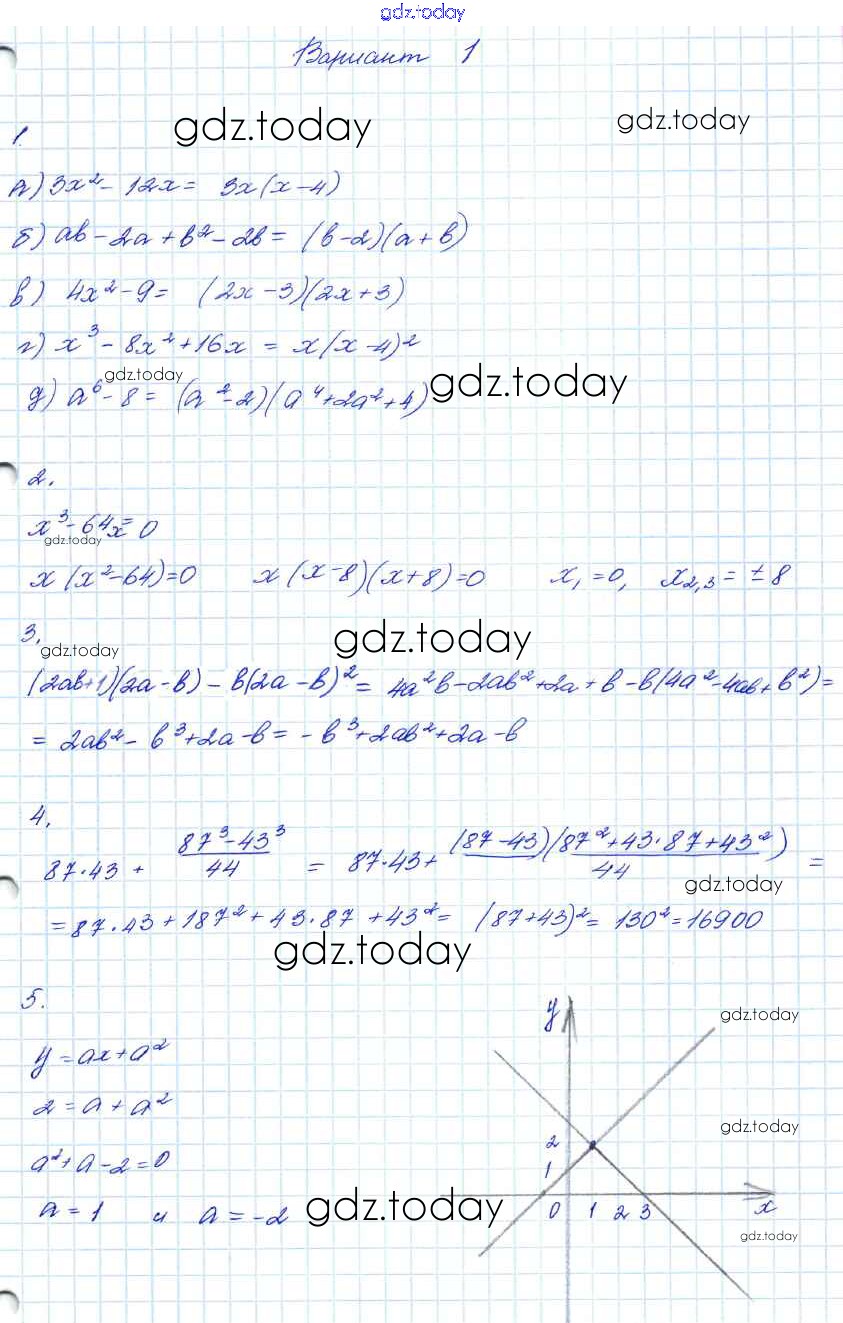 gdz.today
Вариант 1
gdz.today gdz.today
1.
а) 3x² - 12x = 3x(x-4)
б) ab - 2a + b² - 2b = (b-2)(a+b)
в) 4x² - 9 = (2x-3)(2x+3)
г) x³ - 8x² + 16x = x(x-4)²
gdz.today gdz.today
д) a⁶ - 8 = (a²-2)(a⁴+2a²+4)
2.
x³ - 64x = 0
gdz.today
x(x²-64)=0 x(x-8)(x+8)=0 x₁=0, x₂,₃ = ±8
3.
gdz.today gdz.today
(2ab+1)(2a-b) - b(2a-b)² = 4a²b - 2ab² + 2a + b - b(4a² - 4ab + b²) =
= 2ab² - b³ + 2a - b = -b³ + 2ab² + 2a - b
4.
87·43 + (87³-43³)/44 = 87·43 + (87-43)(87²+43·87+43²)/44 =
gdz.today
= 87·43 + 187² + 43·87 + 43² = (87+43)² = 130² = 16900
gdz.today
5.
y
gdz.today
y = ax + a²
2 = a + a²
gdz.today
2
a² + a - 2 = 0
1
a = 1 и a = -2
gdz.today
0 1 2 3 x
gdz.today